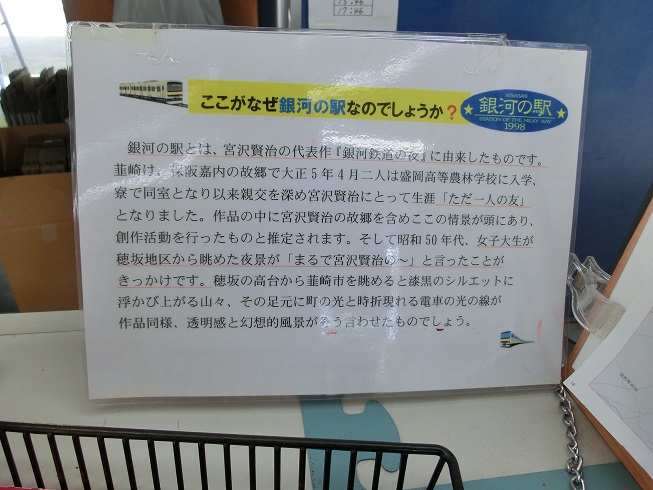 17:46
ここがなぜ銀河の駅なのでしょうか?
NIRASAKI
銀河の駅
STATION OF THE MILKY WAY
1998
銀河の駅とは、宮沢賢治の代表作『銀河鉄道の夜』に由来したものです。
韮崎は、保阪嘉内の故郷で大正5年4月二人は盛岡高等農林学校に入学、
寮で同室となり以来親交を深め宮沢賢治にとって生涯「ただ一人の友」
となりました。作品の中に宮沢賢治の故郷を含めここの情景が頭にあり、
創作活動を行ったものと推定されます。そして昭和50年代、女子大生が
穂坂地区から眺めた夜景が「まるで宮沢賢治の~」と言ったことが
きっかけです。穂坂の高台から韮崎市を眺めると漆黒のシルエットに
浮かび上がる山々、その足元に町の光と時折現れる電車の光の線が
作品同様、透明感と幻想的風景がそう言わせたものでしょう。